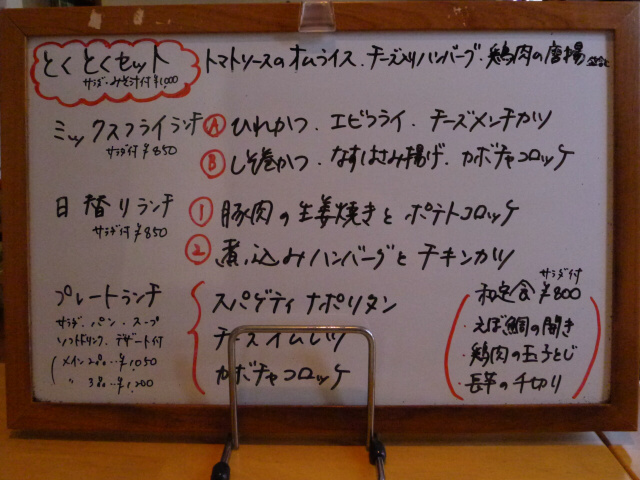 とくとくセット トマトソースのオムライス、チーズ入りハンバーグ、鶏肉の唐揚
サラダ・みそ汁付 ¥1,000
ミックスフライランチ Ⓐ ひれかつ、エビフライ、チーズメンチカツ
サラダ付 ¥850
Ⓑ しそ巻かつ、なすはさみ揚げ、カボチャコロッケ
日替りランチ ① 豚肉の生姜焼きとポテトコロッケ
サラダ付 ¥850
② 煮込みハンバーグとチキンカツ
プレートランチ スパゲティナポリタン
サラダ、パン、スープ
ソフトドリンク、デザート付
(メイン2品…¥1,050
〃 3品…¥1,200
チーズオムレツ
カボチャコロッケ
サラダ付
和定食 ¥800
・えぼ鯛の開き
・鶏肉の玉子とじ
・長芋の千切り